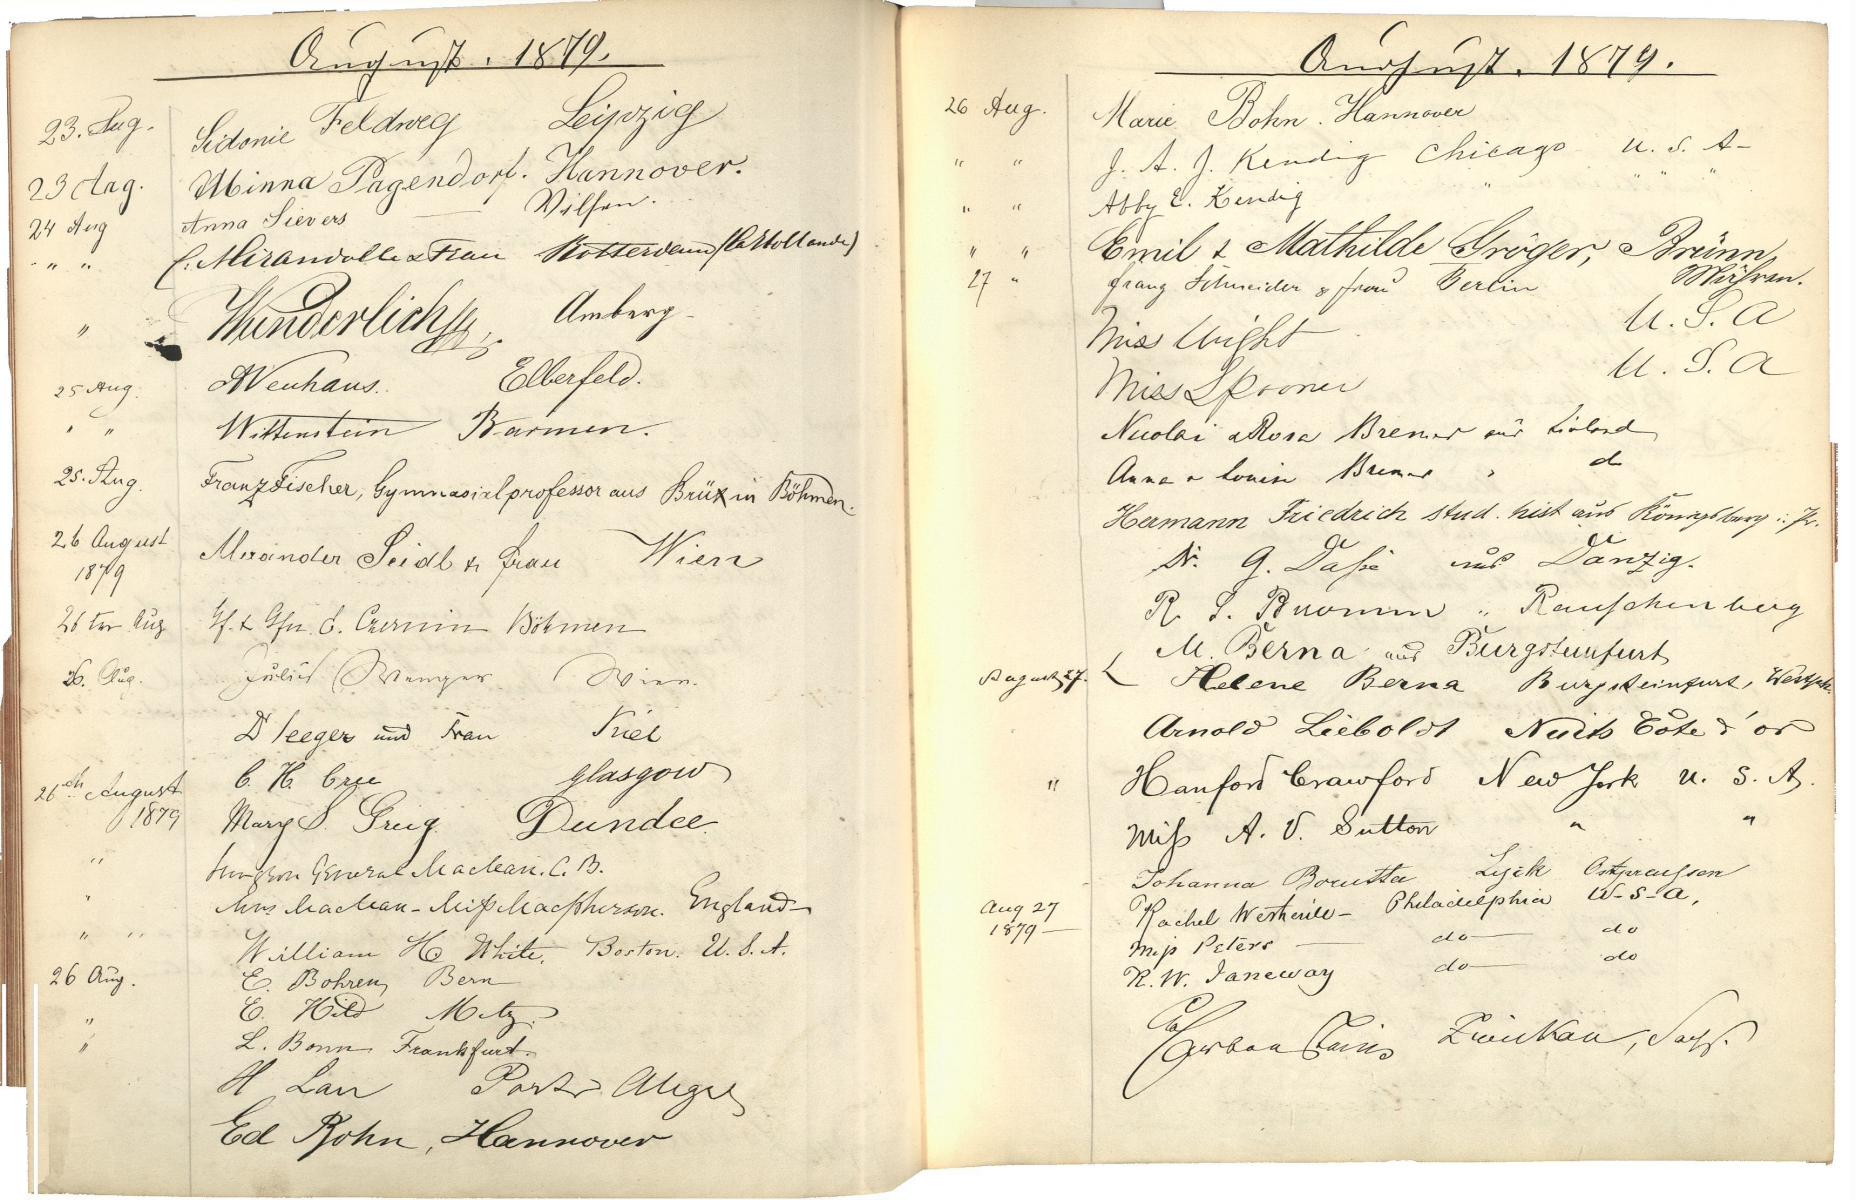 August. 1879.
23. Aug. Sidonie Feldweg Leipzig
23 Aug. Minna Pagendorf. Hannover.
24 Aug Anna Sievers — Vilsen.
" " " C. Mirandolle & Frau Rotterdam (la Hollande)
" Wunderlich Amberg
25 Aug. Neuhaus. Elberfeld.
" " Wittenstein Barmen.
25. Aug. Franz Fischer, Gymnasialprofessor aus Brüx in Böhmen.
26 August Alexander Seidl & Frau Wien
1879
26 Aug Gf. & Gfn. Czernin Böhmen
26. Aug. Julius Wien.
Dr Seeger und Frau Kiel
C. H. Cree Glasgow
26th August
1879 Mary S. Greig. Dundee.
" Surgeon General MacLean. C. B.
" Mrs MacLean — Miss MacPherson. England —
" " William H. White. Boston. U. S. A.
26 Aug. E. Bohren, Bern
" E. Hild Metz.
" L. Bonn. Frankfurt.
H Lau Porto Alegre
Ed Bohn, Hannover
August. 1879.
26 Aug. Marie Bohn. Hannover
" " J. A. J. Kendig Chicago U. S. A —
" " Abby E. Kendig " " " "
" " Emil & Mathilde Gröger, Brünn
Mähren.
27 " Franz Schneider & Frau Berlin
Miss Wight U. S. A
Miss Spooner U. S. A
Nicolai & Rosa Bremer aus Livland
Anna & Louise Bremer " do
Hermann Friedrich stud. hist aus Königsberg i. Pr.
Dr. G. Dasse aus Danzig.
R. S. " Rauschenberg
M. Berna aus Burgsteinfurt
August 27. Helene Berna Burgsteinfurt, Westph.
Arnold Lieboldt Nuits Côte d'or
" Hanford Crawford New York U. S. A.
Miss A. V. Sutton " "
Johanna Borutta Lyck Ostpreussen
Aug 27 Rachel Philadelphia U-S-A,
1879 — Miss Peters — do — do
R. W. Janeway do — do
Zwickau, Sachs.